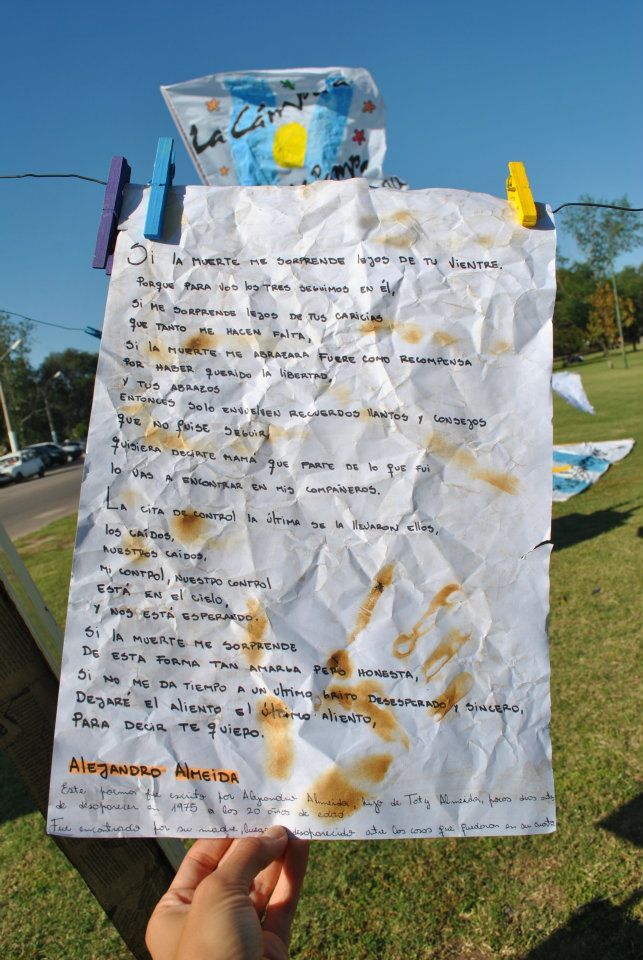 La Cámpora
Si LA MUERTE ME SORPRENDE LEJOS DE TU VIENTRE,
PORQUE PARA VOS LOS TRES SEGUIMOS EN ÉL,
SI ME SORPRENDE LEJOS DE TUS CARICIAS
QUE TANTO ME HACEN FALTA,
SI LA MUERTE ME ABRAZARA FUERE COMO RECOMPENSA
POR HABER QUERIDO LA LIBERTAD,
Y TUS ABRAZOS
ENTONCES SOLO ENVUELVEN RECUERDOS LLANTOS Y CONSEJOS
QUE NO QUISE SEGUIR,
QUISIERA DECIRTE MAMA QUE PARTE DE LO QUE FUI
LO VAS A ENCONTRAR EN MIS COMPAÑEROS.
LA CITA DE CONTROL LA ÚLTIMA SE LA LLEVARON ELLOS,
LOS CAÍDOS,
NUESTROS CAÍDOS,
MI CONTROL, NUESTRO CONTROL
ESTÁ EN EL CIELO,
Y NOS ESTÁ ESPERANDO.
SI LA MUERTE ME SORPRENDE
DE ESTA FORMA TAN AMARGA PERO HONESTA,
SI NO ME DA TIEMPO A UN ULTIMO GRITO DESESPERADO Y SINCERO,
DEJARÉ EL ALIENTO EL ÚLTIMO ALIENTO,
PARA DECIR TE QUIERO.
ALEJANDRO ALMEIDA
Este poema fue escrito por Alejandro Almeida, hijo de Taty Almeida, pocos días antes
de desaparecer en 1975 a los 20 años de edad
Fue encontrado por su madre, luego desaparecido entre las cosas que quedaron en su cuarto